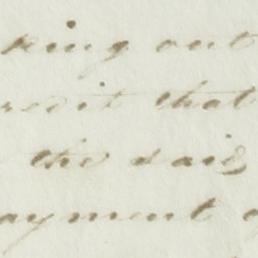 king out
redit that
the said
ayment of